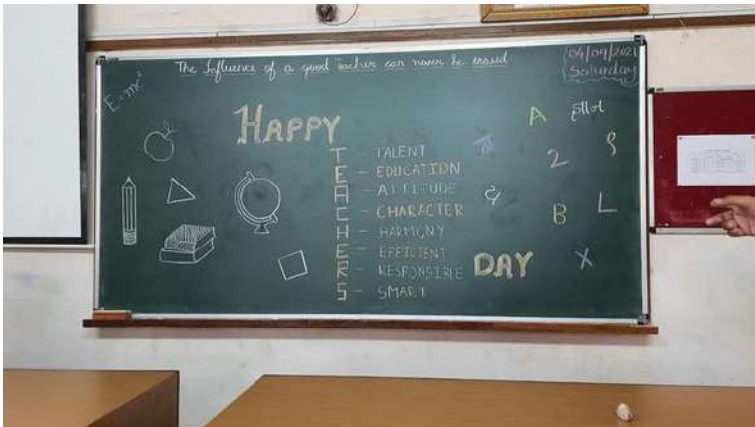 The Influence of a good teacher can never be erased
04/09/2021
Saturday
E=mc²
HAPPY
T - TALENT
E - EDUCATION
A - ATTITUDE
C - CHARACTER
H - HARMONY
E - EFFICIENT
R - RESPONSIBLE
S - SMART
DAY
A
2
B
L
X